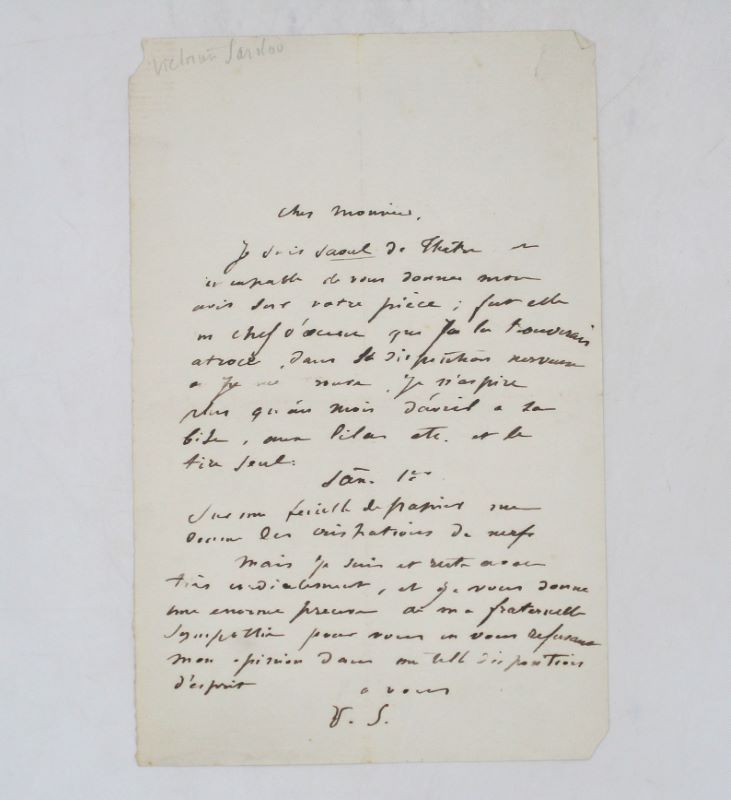 Victorien Sardou
Cher Monsieur,
Je suis saoul de Théâtre et
incapable de vous donner mon
avis sur votre pièce ; fut elle
un chef d'œuvre que Je la trouverais
atroce, dans la disposition nerveuse
où Je me trouve. Je n'aspire
plus qu'au mois d'avril à la
bise, aux lilas etc. et le
titre seul:
Scèn. 1ère
Sur une feuille de papier me
donne des crispations de nerfs
Mais je suis et reste
très cordialement, et je vous donne
une enorme preuve de ma fraternelle
sympathie pour vous en vous refusant
mon opinion dans une telle disposition
d'esprit
a vous
V. S.